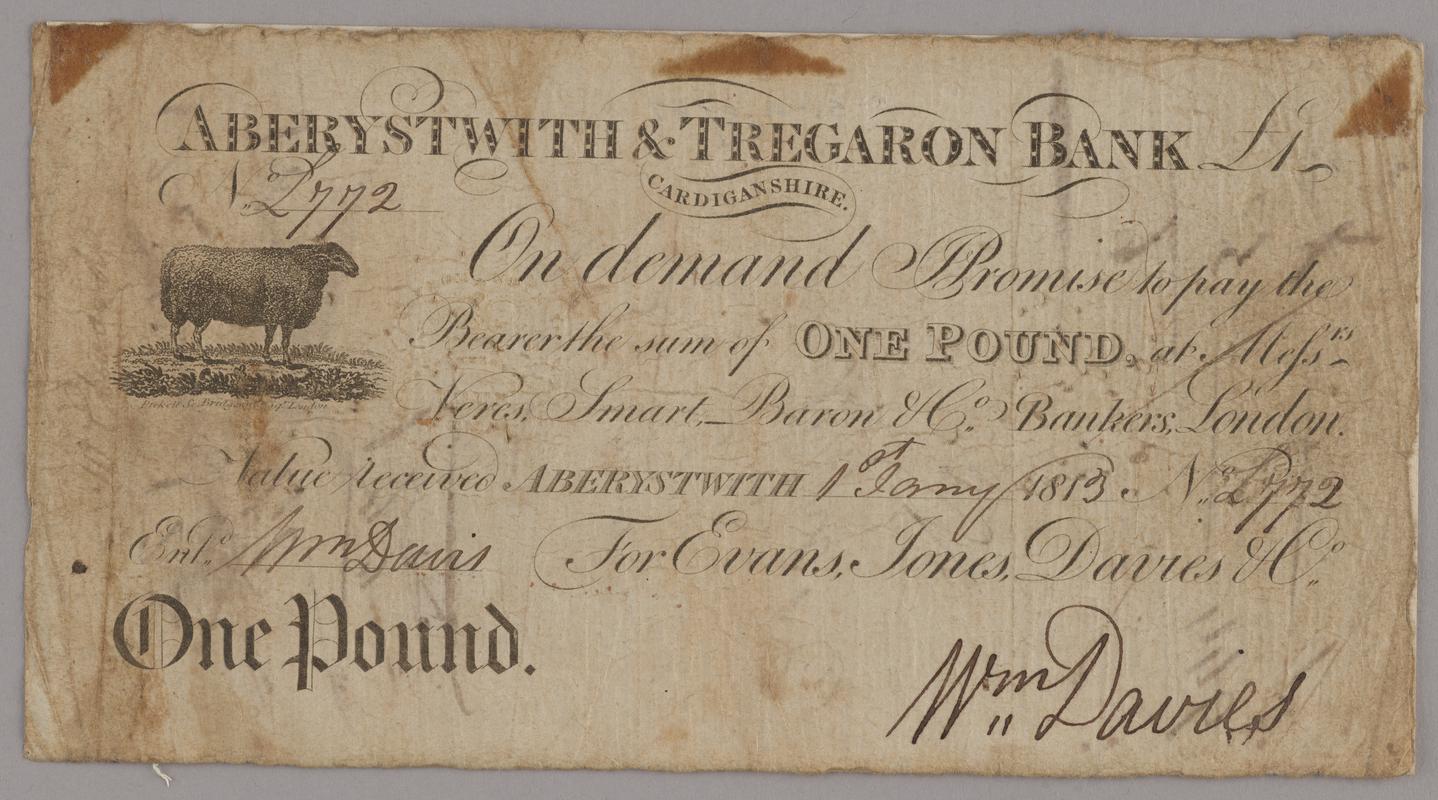 ABERYSTWITH & TREGARON BANK £1
CARDIGANSHIRE.
No. L772
On demand I Promise to pay the
Bearer the sum of ONE POUND, at Mess.rs
Veres, Smart, Baron & Co. Bankers, London.
Value received ABERYSTWITH 1st Jany 1813. No. L772
Ent.d Wm Davis For Evans, Jones, Davies & Co.
One Pound.
Wm Davies